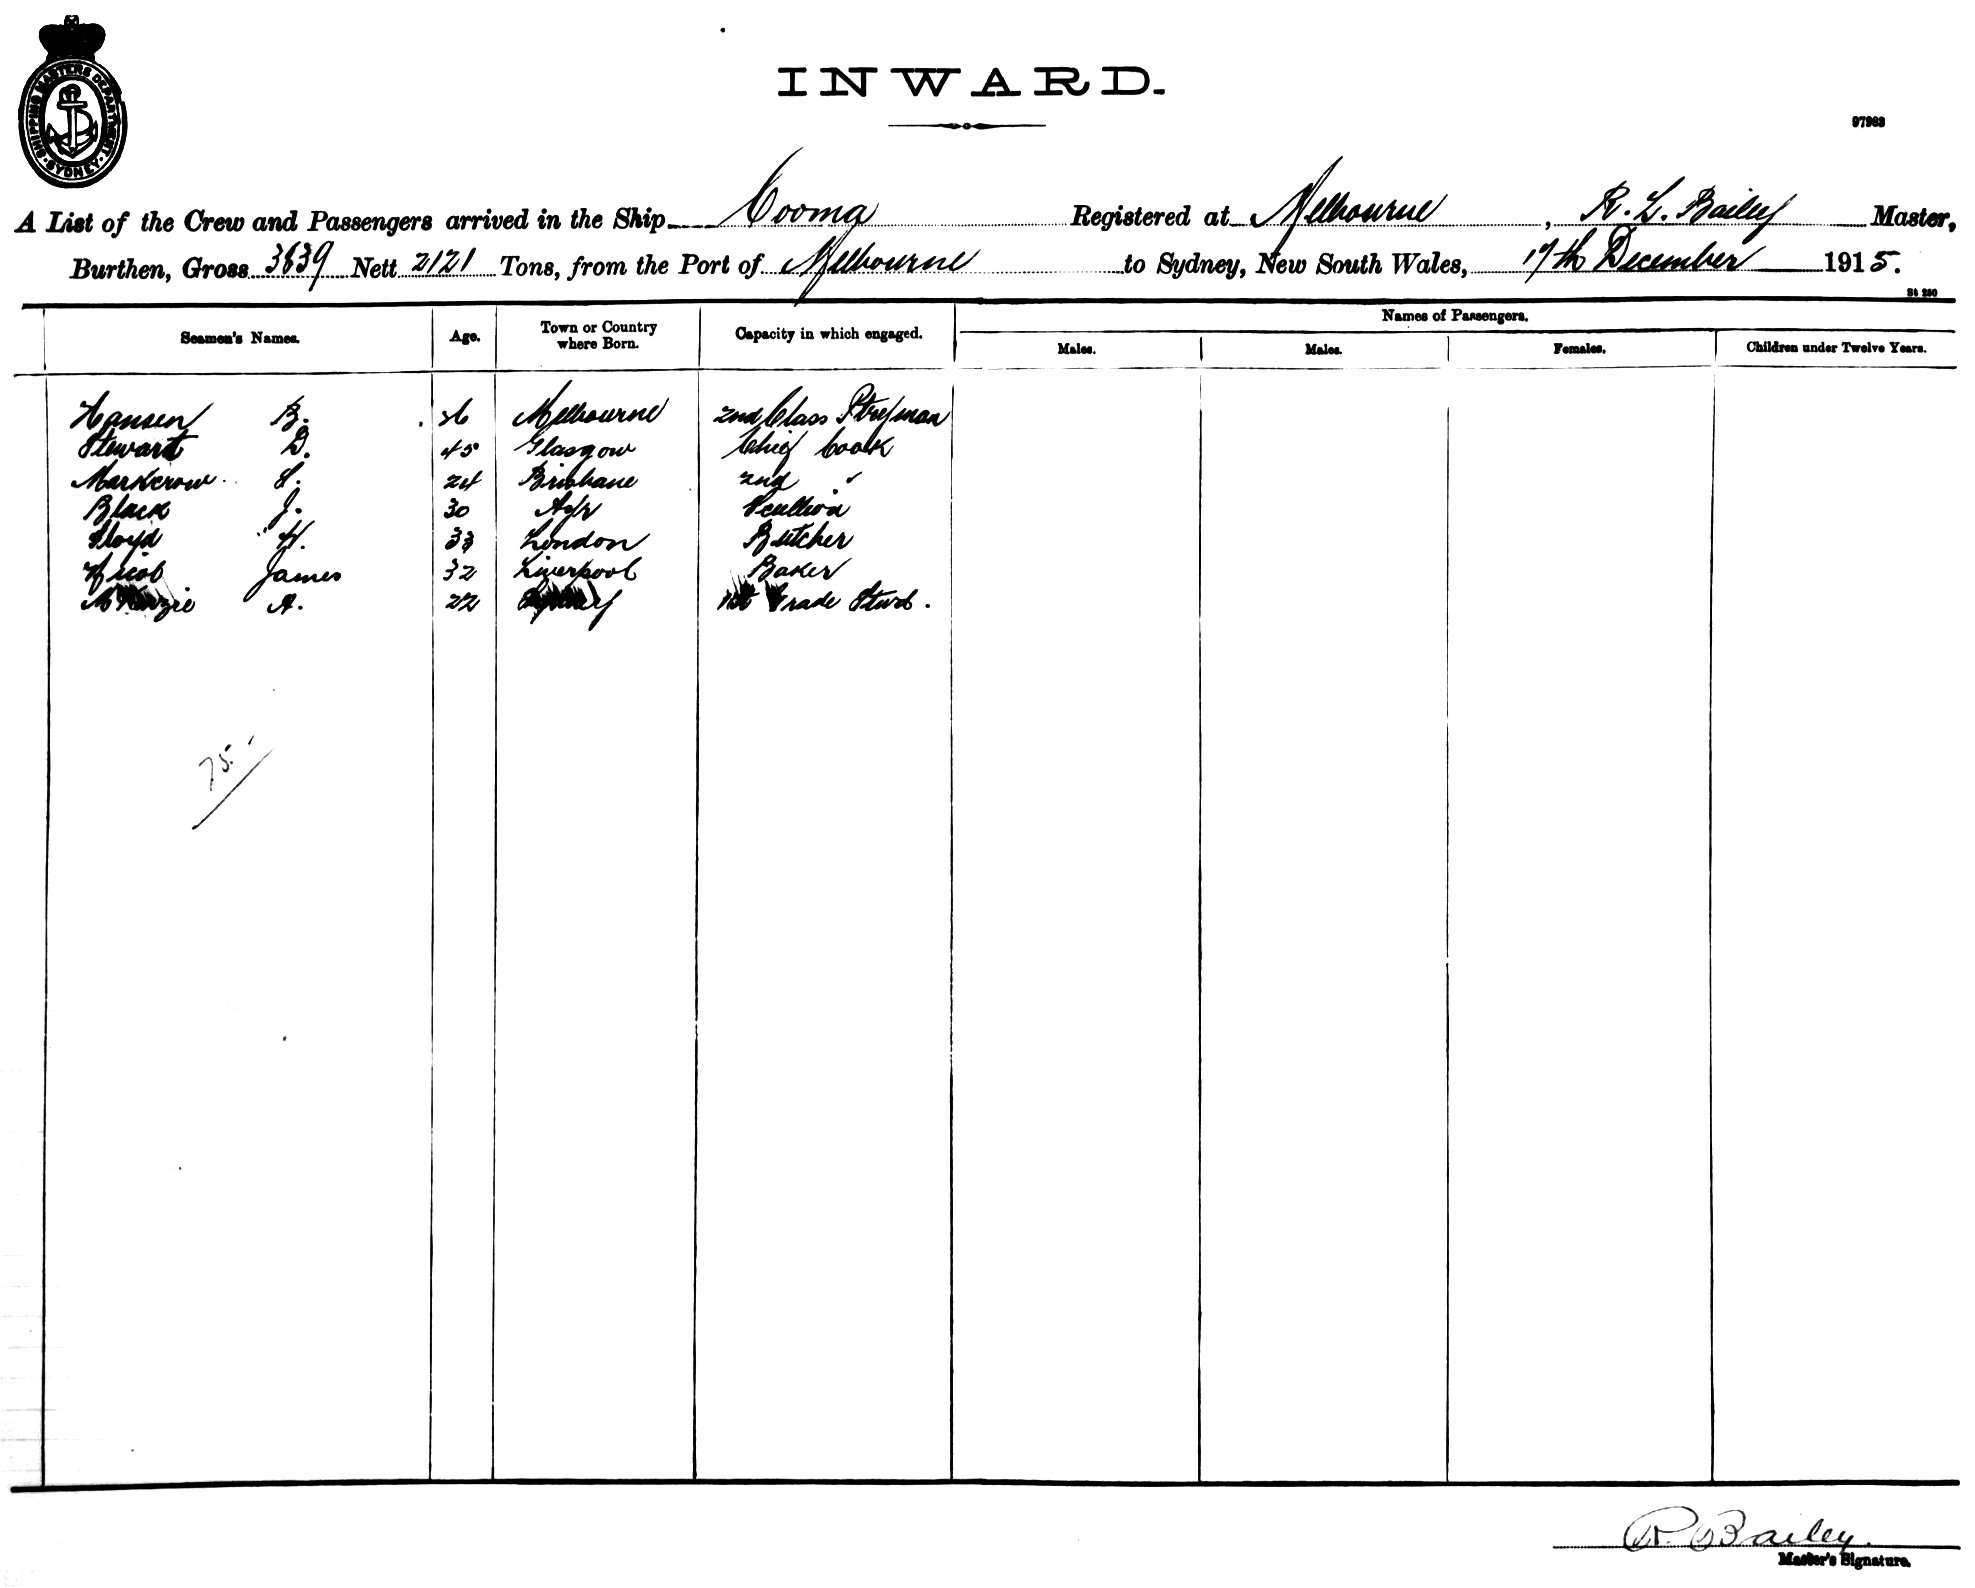 SHIPPING MASTERS DEPARTMENT · SYDNEY ·
INWARD.
97963
A List of the Crew and Passengers arrived in the Ship Cooma Registered at Melbourne, R. L. Bailey Master,
Burthen, Gross 3639 Nett 2121 Tons, from the Port of Melbourne to Sydney, New South Wales, 17th December 1915.
St 250
Names of Passengers.
Seamen's Names. Age. Town or Country where Born. Capacity in which engaged. Males. Males. Females. Children under Twelve Years.
Hansen B. 26 Melbourne 2nd Class
Stewart D. 45 Glasgow Chief Cook
Markcrow S. 24 Brisbane 2nd "
Black J. 30 Ayr Scullion
Lloyd H. 33 London Butcher
Nicol James 32 Liverpool Baker
McKenzie A. 22 1st Grade Stwd.
75.
R. Bailey.
Master's Signature.